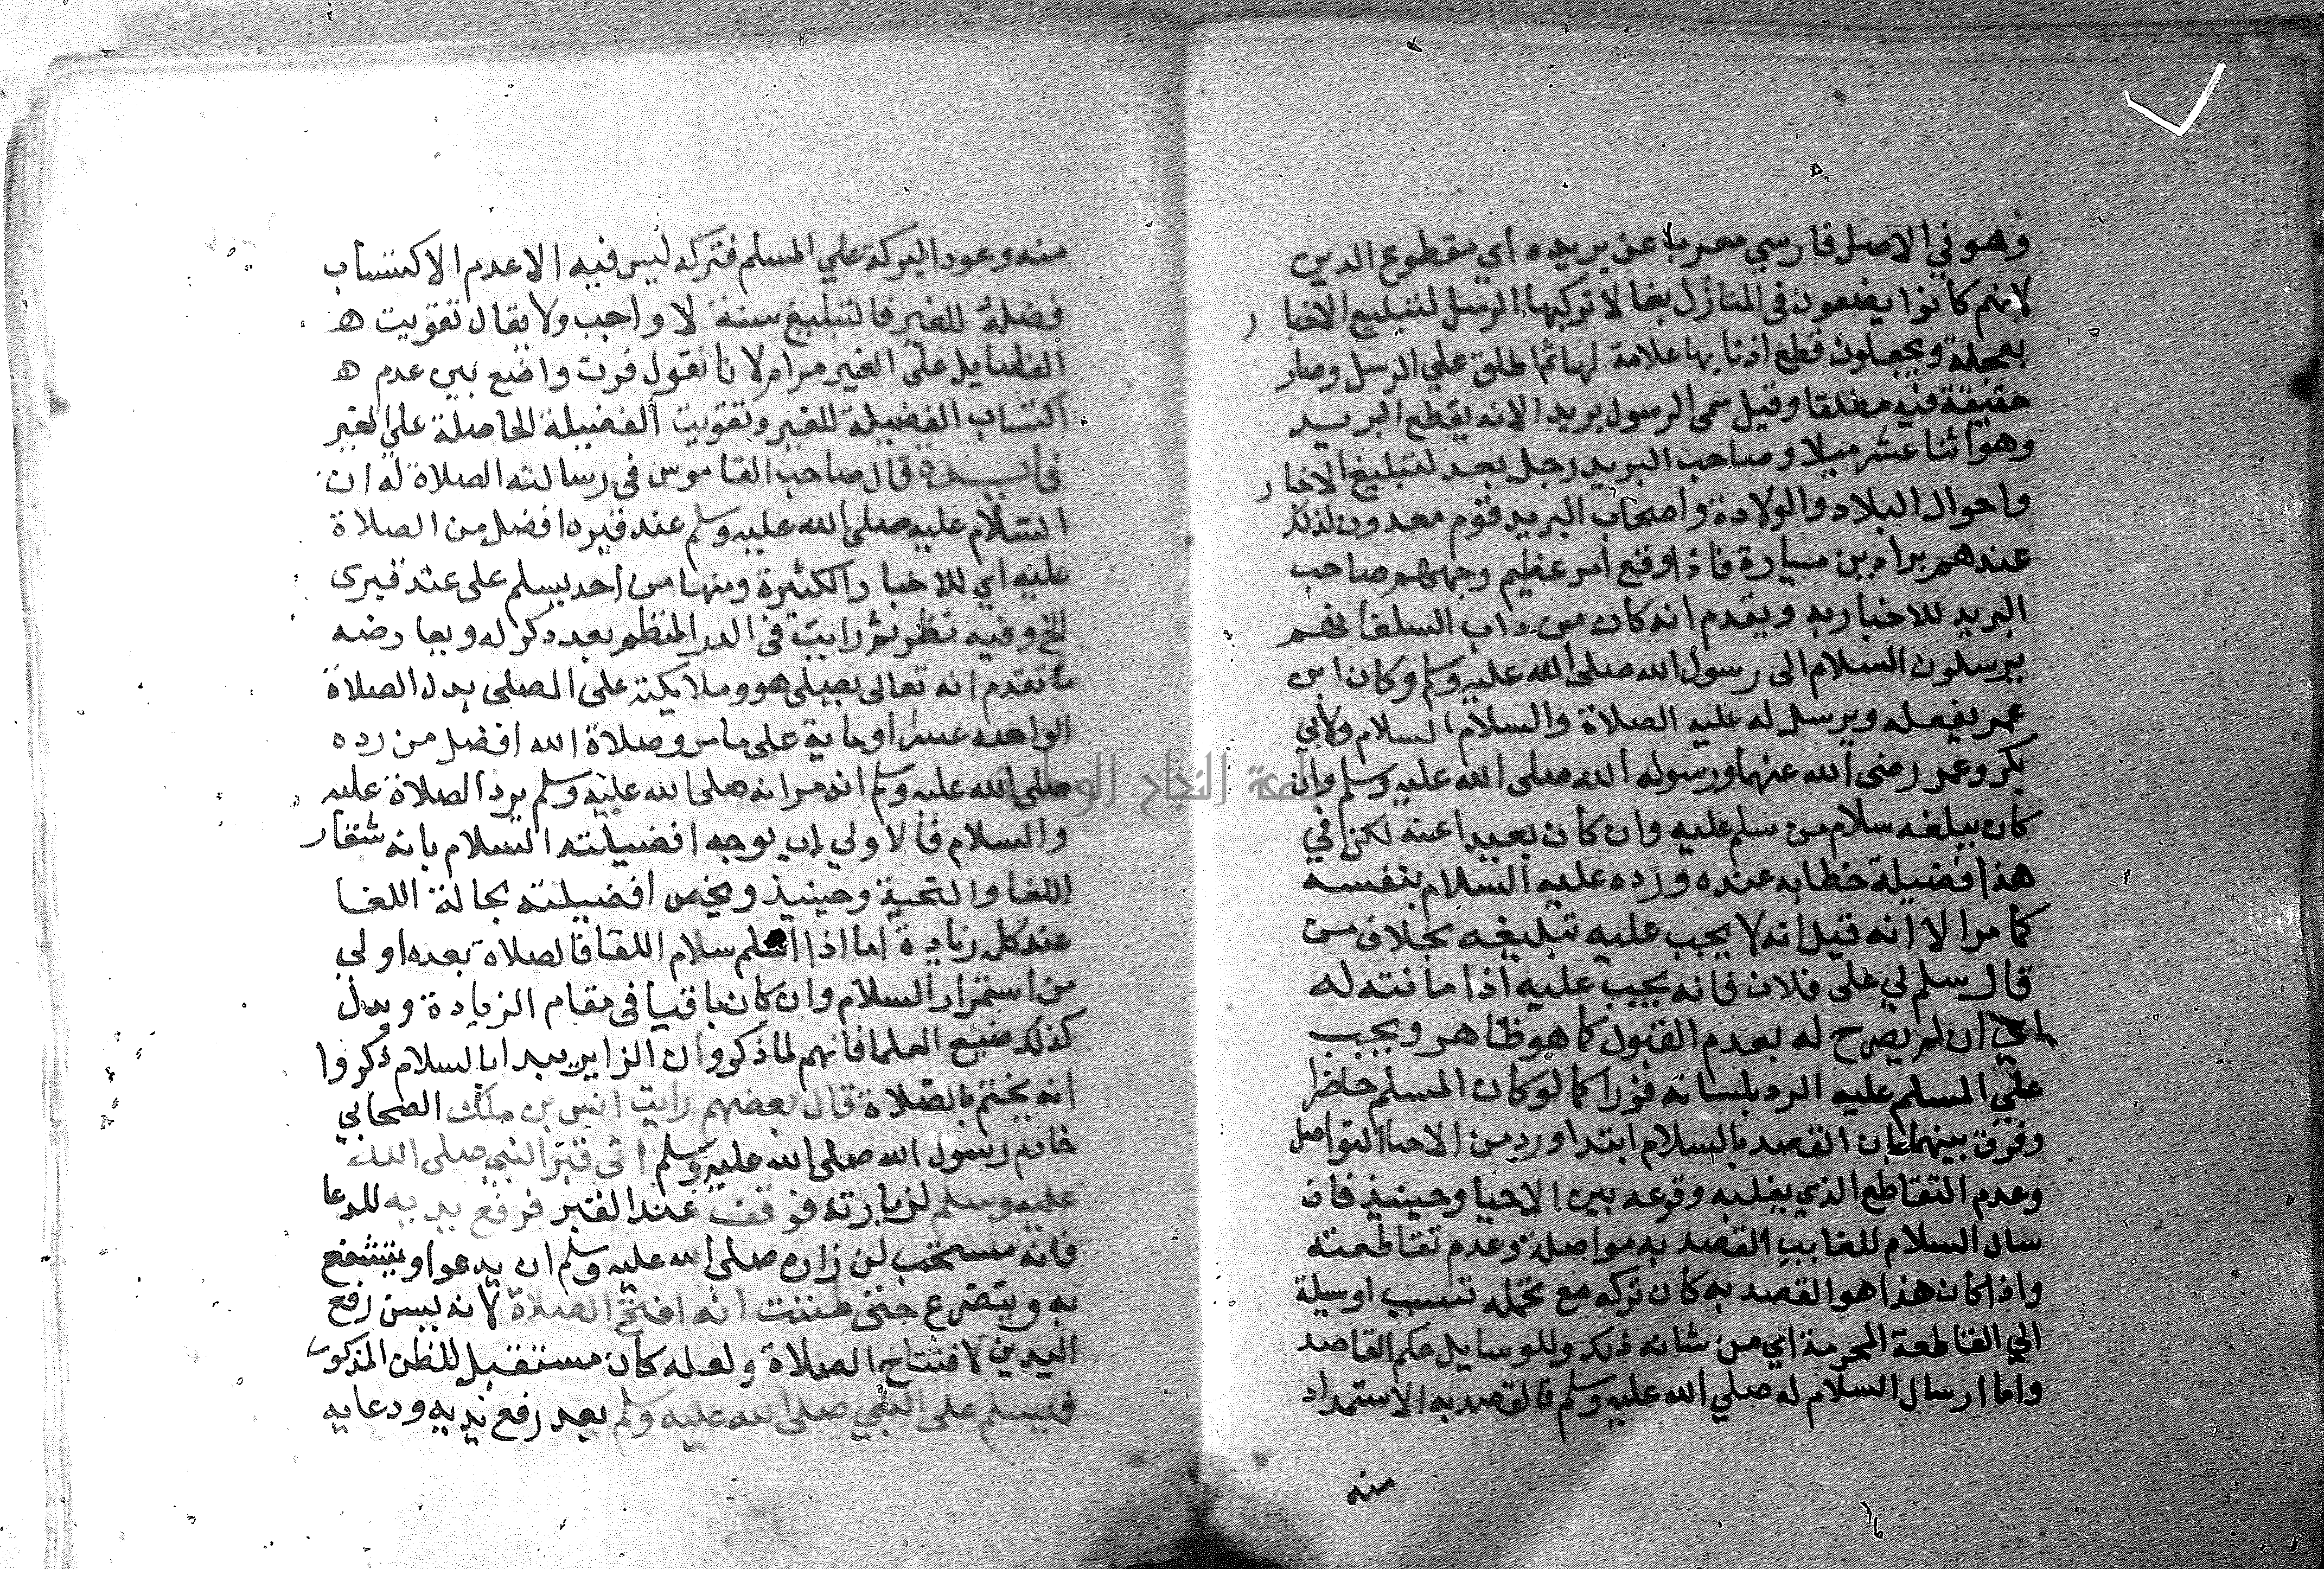 وهو في الاصل فارسي معربا عن بريده اي مقطوع الدين
لانهم كانوا يضعون في المنازل بغالا تركبها الرسل لتبليغ الاخبار
بعجلة ويجعلون قطع اذنابها علامة لها ثم اطلق علي الرسل وصار
حقيقة فيه مطلقا وقيل سمى الرسول بريدا لانه يقطع البريد
وهو اثنا عشر ميلا وصاحب البريد رجل يعد لتبليغ الاخبار
واحوال البلاد والولادة واصحاب البريد قوم معدون لذلك
عندهم براذين سيارة فاذا وقع امر عظيم وجههم صاحب
البريد للاخبار به ويقدم انه كان من داب السلف انهم
يرسلون السلام الى رسول الله صلى الله عليه وسلم وكان ابن
عمر يفعله ويرسل له عليه الصلاة والسلام السلام ولابي
بكر وعمر رضى الله عنهما ورسوله الله صلى الله عليه وسلم وان
كان يبلغه سلام من سلم عليه وان كان بعيدا عنه لكن في
هذا فضيلة خطابه عنده ورده عليه السلام بنفسه
كما مر الا انه قيل انه لا يجب عليه تبليغه بخلاف من
قال سلم لي على فلان فانه يجب عليه اذا ما نته له
اي ان لم يصرح له بعدم القبول كما هو ظاهر ويجب
علي المسلم عليه الرد بلسانه فورا كما لو كان المسلم حاضرا
وفرق بينهما بان القصد بالسلام ابتدا ورد من الاحيا التواصل
وعدم التقاطع الذي يغلب وقوعه بين الاحيا وحينيذ فان
سال السلام للغايب القصد به مواصلة وعدم تقاطعته
واذا كان هذا هو القصد به كان تركه مع تحمله تسبب او سيلة
الي القاطعة المحرمة اي من شانه ذلك وللوسايل حكم القاصد
واما ارسال السلام له صلي الله عليه وسلم فالقصد به الاستمداد
منه
منه وعود البركة علي المسلم فتركه ليس فيه الا عدم الاكتساب
فضلة للغير فالتبليغ سنة لا واجب ولا يقال تفويت ه
الفضايل على الغير مرام لانا نقول فرت واضع بين عدم ه
اكتساب الفضيلة للغير وتفويت الفضيلة الحاصلة علي الغير
فايدة قال صاحب القاموس في رسالته الصلاة له ان
السلام عليه صلى الله عليه وسلم عند قبره افضل من الصلاة
عليه اي للاخبار الكثيرة ومنها من احد يسلم على عند قبرى
الخ وفيه نظر ثم رايت في الدر المنظم بعد ذكر له ويعارضه
ما تقدم انه تعالى يصلى هو وملايكته على المصلى بدل الصلاة
الواحده عشرا او ماية على ما مر وصلاة الله افضل من رده
صلى الله عليه وسلم انه مر انه صلى الله عليه وسلم يرد الصلاة عليه
والسلام فالاولي ان يوجه افضيلته السلام بانه شعار
اللقا والتحية وحينيذ ويخص افضيلته بحالة اللقا
عند كل زيادة اما اذا سلم سلام اللقا فالصلاة بعده اولي
من استمرار السلام وان كان باقيا في مقام الزيادة ويدل
كذلك صنيع العلما فانهم لما ذكروا ان الزاير يبدا بالسلام ذكروا
انه يختم بالصلاة قال بعضهم رايت انس بن ملك الصحابي
خادم رسول الله صلى الله عليه وسلم اتى قبر النبي صلى الله
عليه وسلم لزيارته فوقف عند القبر فرفع يديه للدعا
فانه مستحب لمن زاره صلى الله عليه وسلم ان يدعوا ويتشفع
به ويتضرع حتى ظننت انه افتتح الصلاة لانه يسن رفع
اليدين لافتتاح الصلاة ولعله كان مستقبل للظن المذكور
فليسلم على النبي صلى الله عليه وسلم بعد رفع يديه ودعايه